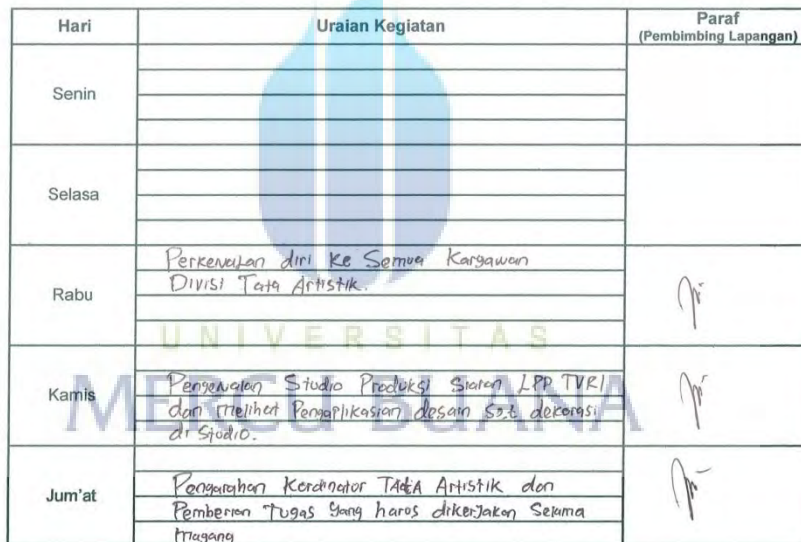 Hari Uraian Kegiatan Paraf
(Pembimbing Lapangan)
Senin
Selasa
Rabu
Perkenalan diri ke Semua Karyawan
Divisi Tata Artistik.
UNIVERSITAS
MERCU BUANA
Kamis
Pengenalan Studio Produksi Siaran LPP TVRI
dan melihat Pengaplikasian desain set dekorasi
di Studio.
Jum'at
Pengarahan Kordinator TAtA Artistik dan
Pemberian Tugas yang harus dikerjakan Selama
Magang